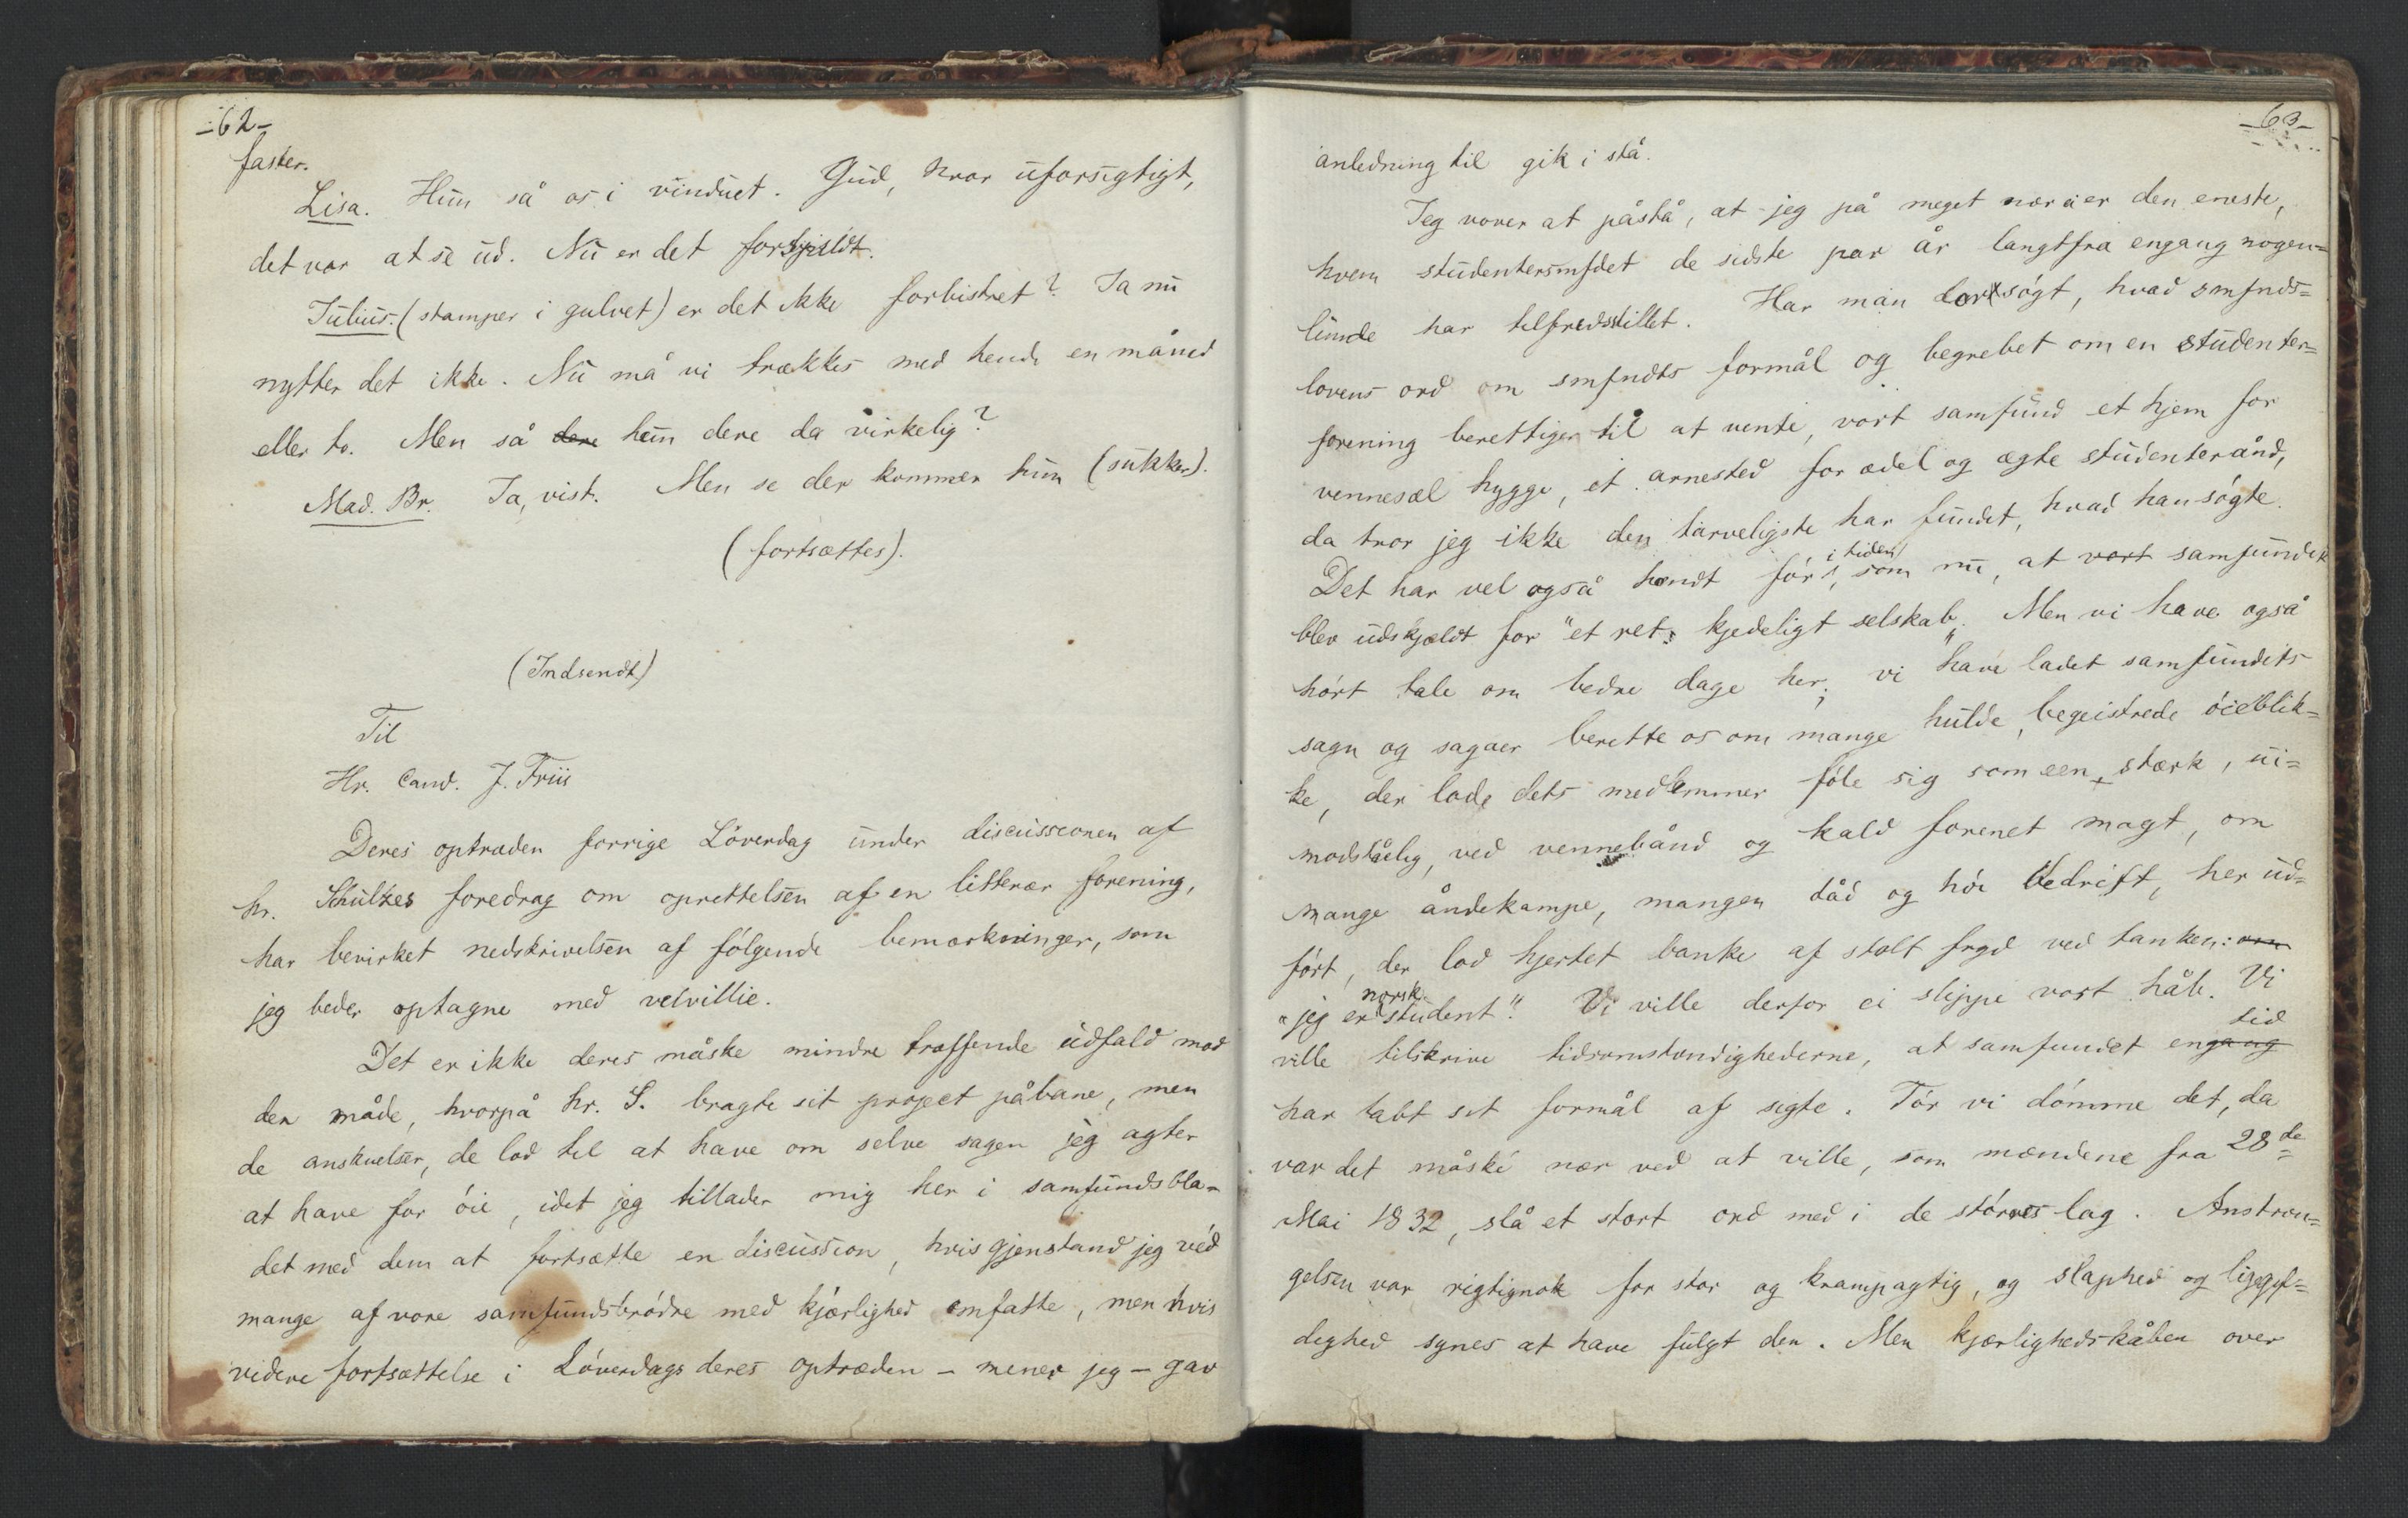 -62-
faster.
Lisa. Hun så os i vinduet. Gud, hvor uforsigtigt,
det var at se ud. Nu er det forspildt.
Julius. (stamper i gulvet) er det ikke forbistret? Ja nu
nytter det ikke. Nu må vi trækkes med hende en måned
eller to. Men så dere hun dere da virkelig?
Mad. Br. Ja, vist. Men se der kommer hun (sukker).
(fortsættes).
(Indsendt)
Til
Hr. Cand. J. Friis
Deres optræden forrige Löverdag under discussionen af
hr. Schultzes foredrag om oprettelsen af en litterær forening,
har bevirket nedskrivelsen af fölgende bemærkninger, som
jeg beder optagne med velvillie.
Det er ikke deres måske mindre træffende udfald mod
den måde, hvorpå hr. S. bragte sit project påbane, men
de anskuelser, de lod til at have om selve sagen jeg agter
at have for öie, idet jeg tillader mig her i samfundsbla-
det med dem at fortsætte en discussion, hvis gjenstand jeg véd
mange af vore samfundsbrödre med kjærlighed omfatte, men hvis
videre fortsættelse i Löverdags deres optræden - mener jeg - gav
-63-
anledning til gik i stå.
Jeg vover at påstå, at jeg på meget nær ei er den eneste,
hvem studentersmfdet de sidste par år langtfra engang nogen=
lunde har tilfredsstillet. Har man søgt, hvad smfnds=
lovens ord om smfndts formål og begrebet om en studenter=
forening berettiger til at vente, vort samfund et hjem for
vennesæl hygge, et arnested for ædel og ægte studenterånd,
da tror jeg ikke den tarveligste har fundet, hvad han sögte.
Det har vel også hændt för i tiden, som nu, at vort samfundet
blev udskjældt for "et ret kjedeligt selskab". Men vi have også
hört tale om bedre dage her; vi have ladet samfundets
sagn og sagaer berette os om mange hulde, begeistrede öieblik=
ke, der lode dets medlemmer föle sig som een stærk, ui=
modståelig, ved vennebånd og kald forenet magt, om
mange åndekampe, mangen dåd og höi bedrift, her ud=
fört, der lod hjertet banke af stolt fryd ved tanken: om
"jeg er norsk student". Vi ville derfor ei slippe vort håb. Vi
ville tilskrive tidsomstændighederne, at samfundet engang tid
har tabt sit formål af sigte. Tör vi dömme det, da
var det måské nær ved at ville, som mændene fra 28de
Mai 1832, slå et stort ord med i de störres lag. Anstræn=
gelsen var rigtignok for stor og krampagtig, og slaphed og ligegyl=
dighed synes at have fulgt den. Men kjærlighedskåben over